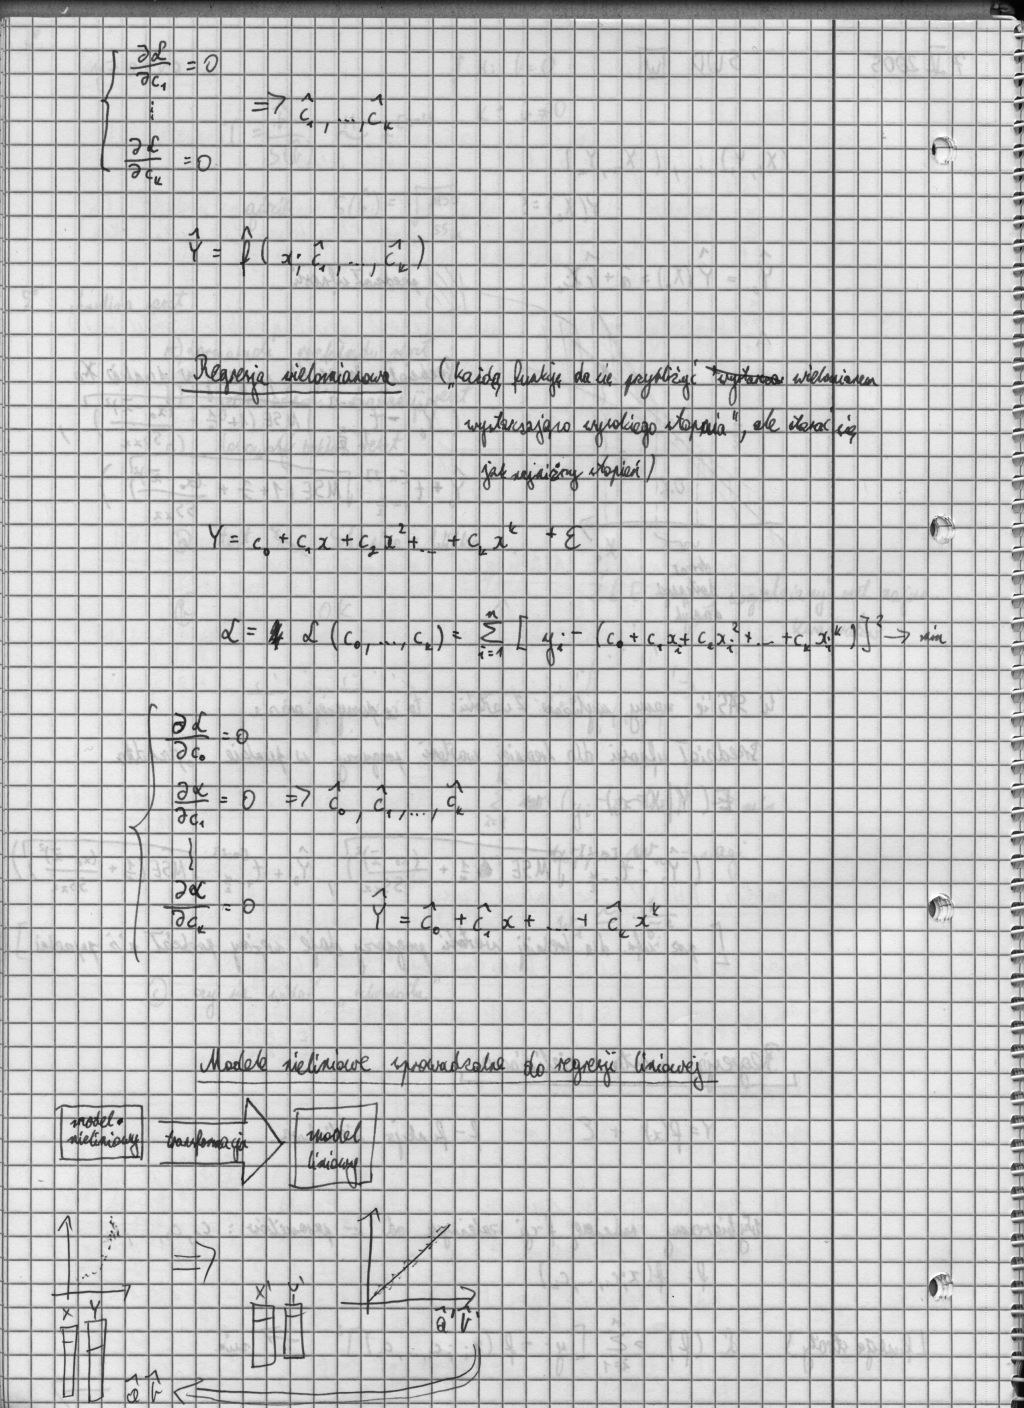 ∂L/∂c₁ = 0
⋮ ⇒ ĉ₁, ..., ĉₖ
∂L/∂cₖ = 0
Ŷ = f̂(x; ĉ₁, ..., ĉₖ)
Regresja wielomianowa („każdą funkcję da się przybliżyć wielomianem
wystarczająco wysokiego stopnia", ale starać się
jak najniższy stopień)
Y = c₀ + c₁x + c₂x² + ... + cₖxᵏ + ε
L = L(c₀, ..., cₖ) = Σᵢ₌₁ⁿ [yᵢ - (c₀ + c₁xᵢ + c₂xᵢ² + ... + cₖxᵢᵏ)]² → min
∂L/∂c₀ = 0
∂L/∂c₁ = 0 ⇒ ĉ₀, ĉ₁, ..., ĉₖ
⋮
∂L/∂cₖ = 0
Ŷ = ĉ₀ + ĉ₁x + ... + ĉₖxᵏ
Modele nieliniowe sprowadzalne do regresji liniowej
model nieliniowy transformacja model liniowy
⇒
X Y X' Y' â' b̂'
â b̂